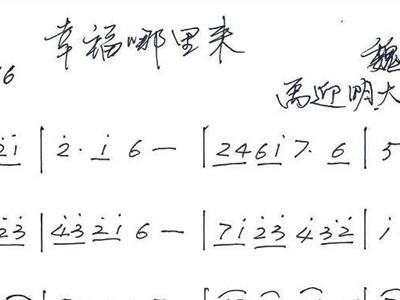 幸福哪里来
6 魏
禹迎明大
2i | 2· i 6 — | 246i 7· 6 | 5
23 | 43 2i 6 — | 7i 23 432 | i